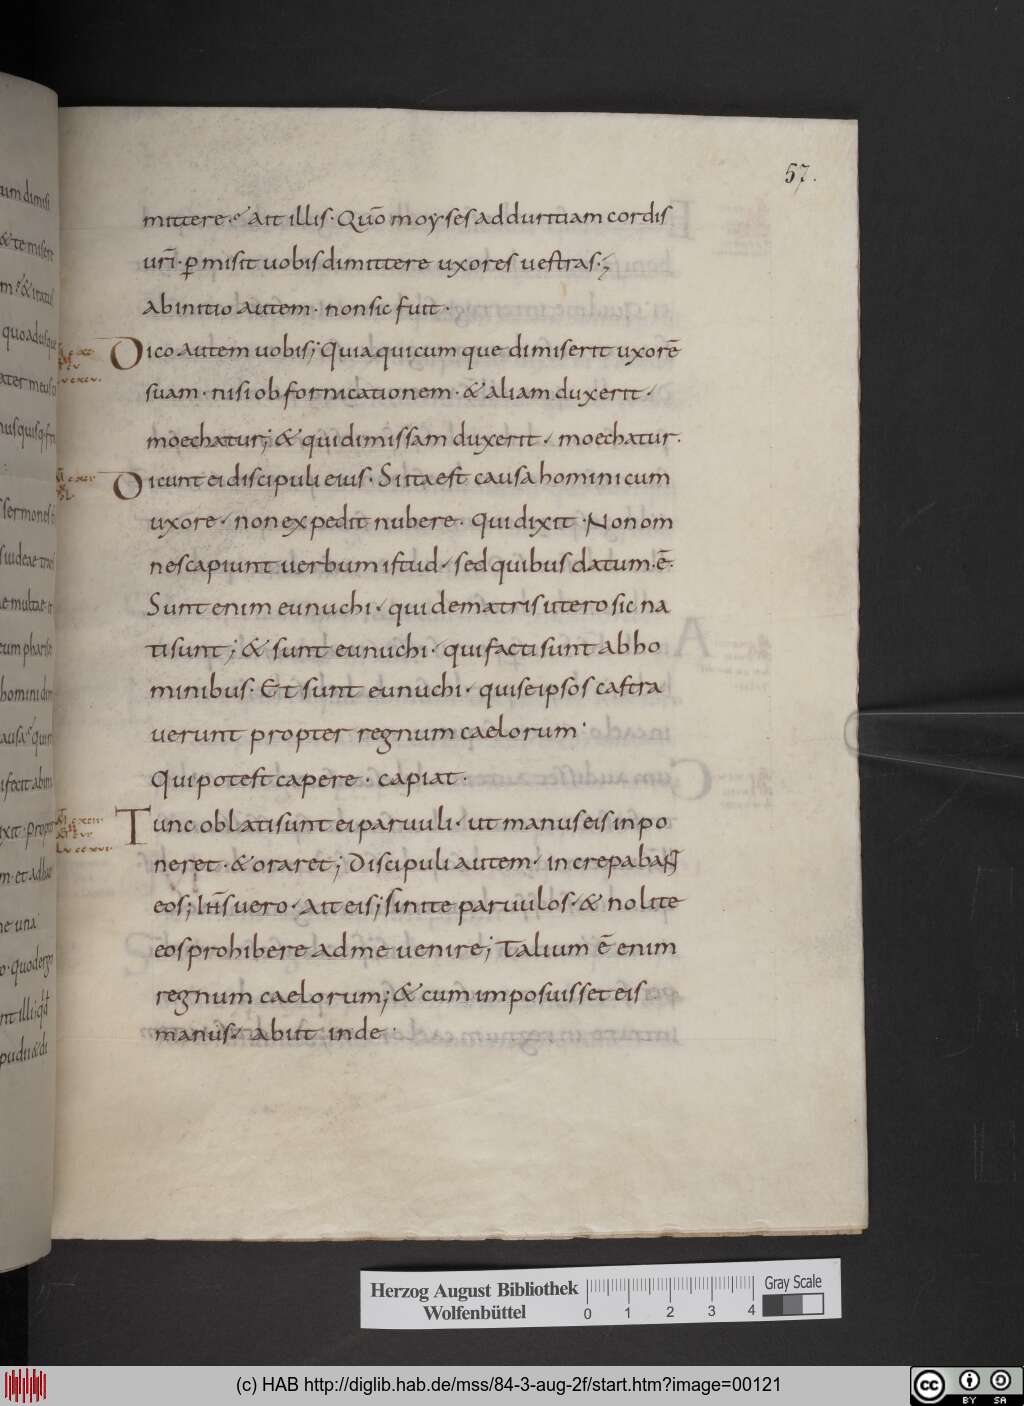 57.
mittere· Ait illis· Quō moyses adduritiam cordis
urī· ꝑmisit uobis dimittere uxores uestras·
Abinitio autem· non sic fuit·
Dico autem uobis; Quia quicumque dimiserit uxorē
suam· nisi ob fornicationem· & aliam duxerit·
moechatur; & qui dimissam duxerit· moechatur·
Dicunt ei discipuli eius· Si ita est causa homini cum
uxore· non expedit nubere· Qui dixit· Non om
nes capiunt uerbum istud· sed quibus datum·ē·
Sunt enim eunuchi· qui dematris utero sic na
ti sunt; & sunt eunuchi· qui facti sunt abho
minibus· Et sunt eunuchi· qui seipsos castra
uerunt propter regnum caelorum·
Qui potest capere· capiat·
Tunc oblati sunt ei paruuli· ut manus eis inpo
neret· & oraret; Discipuli autem· increpabant
eos; Ihs̄ uero· Ait eis; sinite paruulos· & nolite
eos prohibere ad me uenire; Talium ē enim
regnum caelorum; & cum imposuisset eis
manus· abiit inde·
Herzog August Bibliothek
Wolfenbüttel
0 1 2 3 4
Gray Scale
(c) HAB http://diglib.hab.de/mss/84-3-aug-2f/start.htm?image=00121
cc BY SA